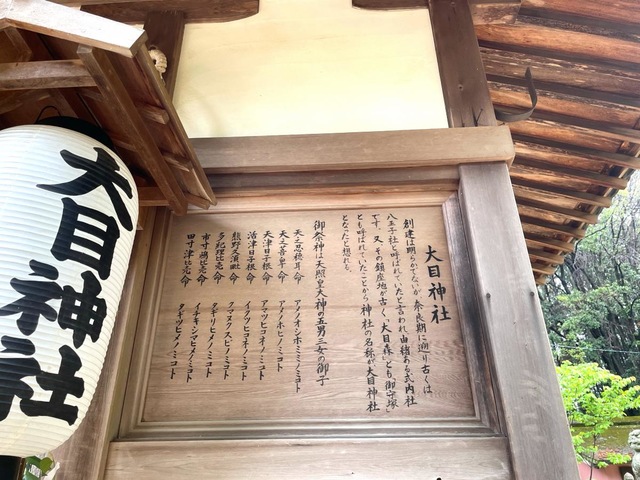 大目神社
創建は明らかでないが、奈良期に遡り古くは
八王子社と呼ばれていたと言われ由緒ある式内社
です。又その鎮座地が古く、大目森とも「御守塚」
とも呼ばれていたことから神社の名称が大目神社
となったと想れる。
御祭神は天照皇大神の五男三女の御子
天之忍穂耳命 アメノオシホミミノミコト
天之菩卑命 アメノホヒノミコト
天津日子根命 アマツヒコネノミコト
活津日子根命 イクツヒコネノミコト
熊野久須毗命 クマヌクスビノミコト
多紀理比売命 タギリヒメノミコト
市寸嶋比売命 イチキシマヒメノミコト
田寸津比売命 タギツヒメノミコト
大目神社
神社